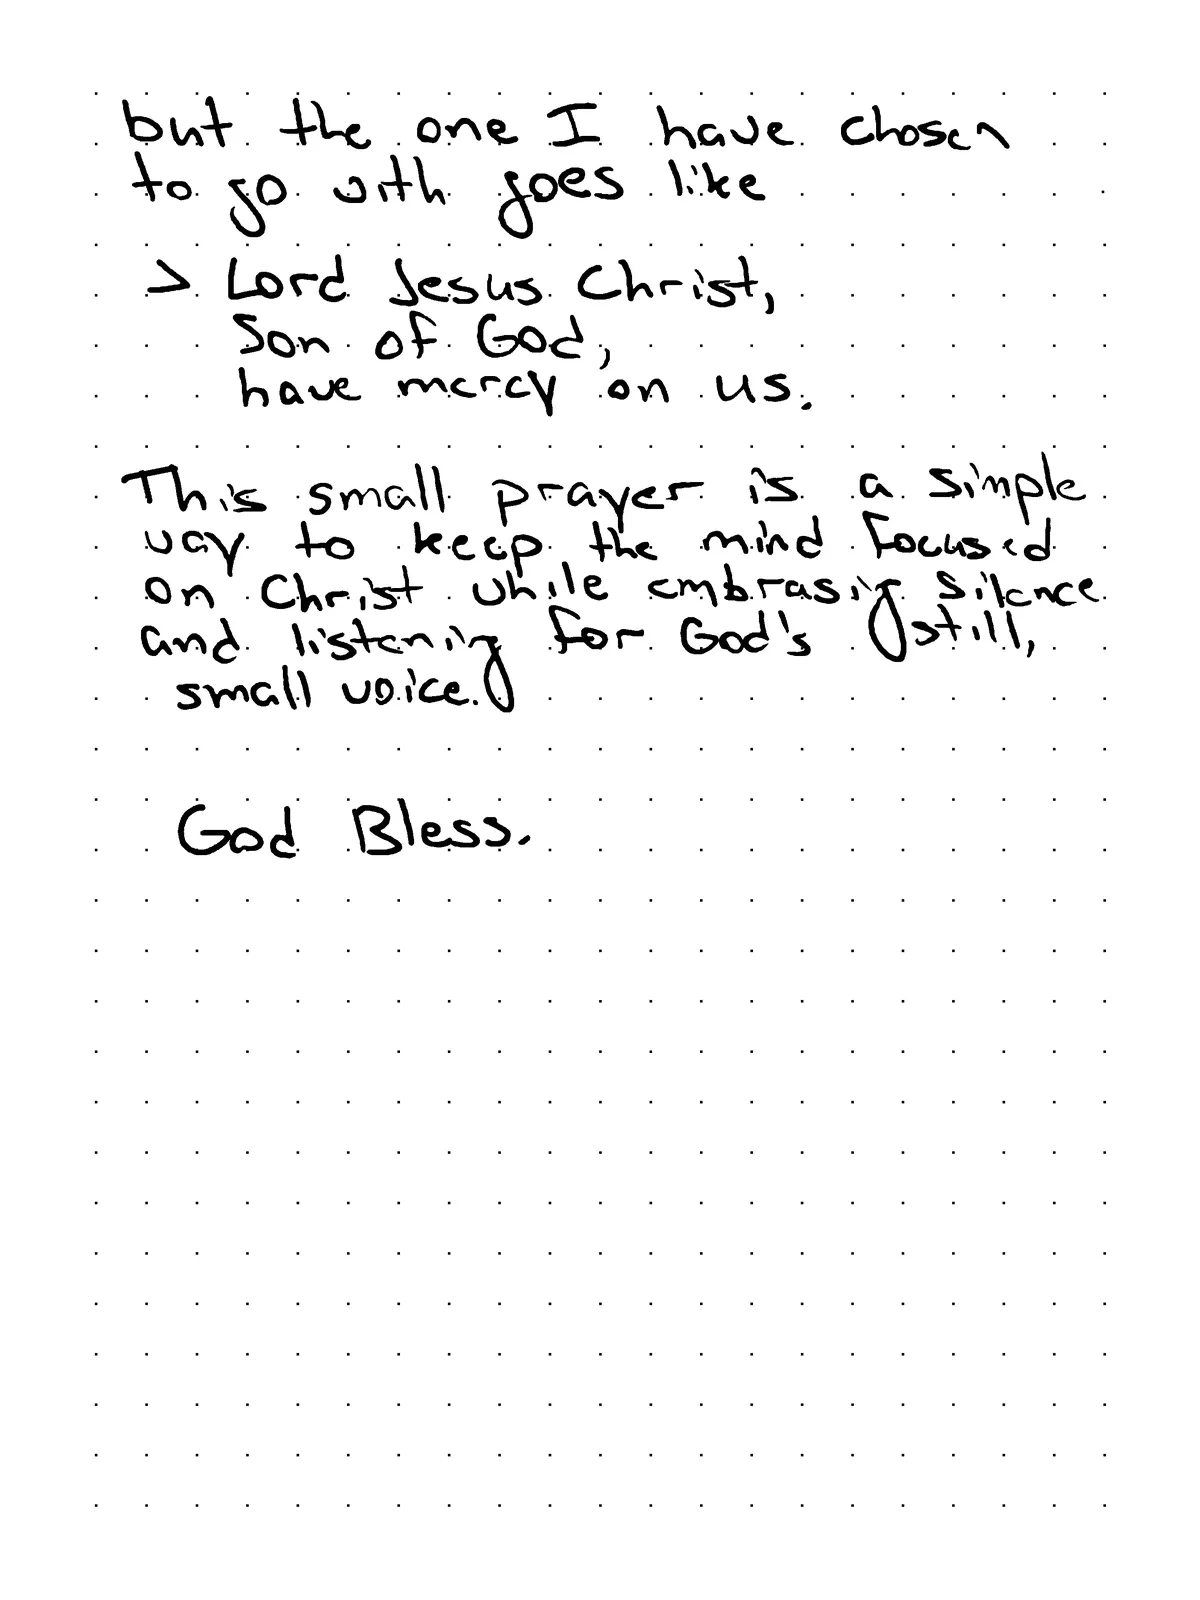 but the one I have chosen
to go with goes like
> Lord Jesus Christ,
Son of God,
have mercy on us.
This small prayer is a simple
way to keep the mind focused
on Christ while embrasing silence
and listening for God's still,
small voice.
God Bless.